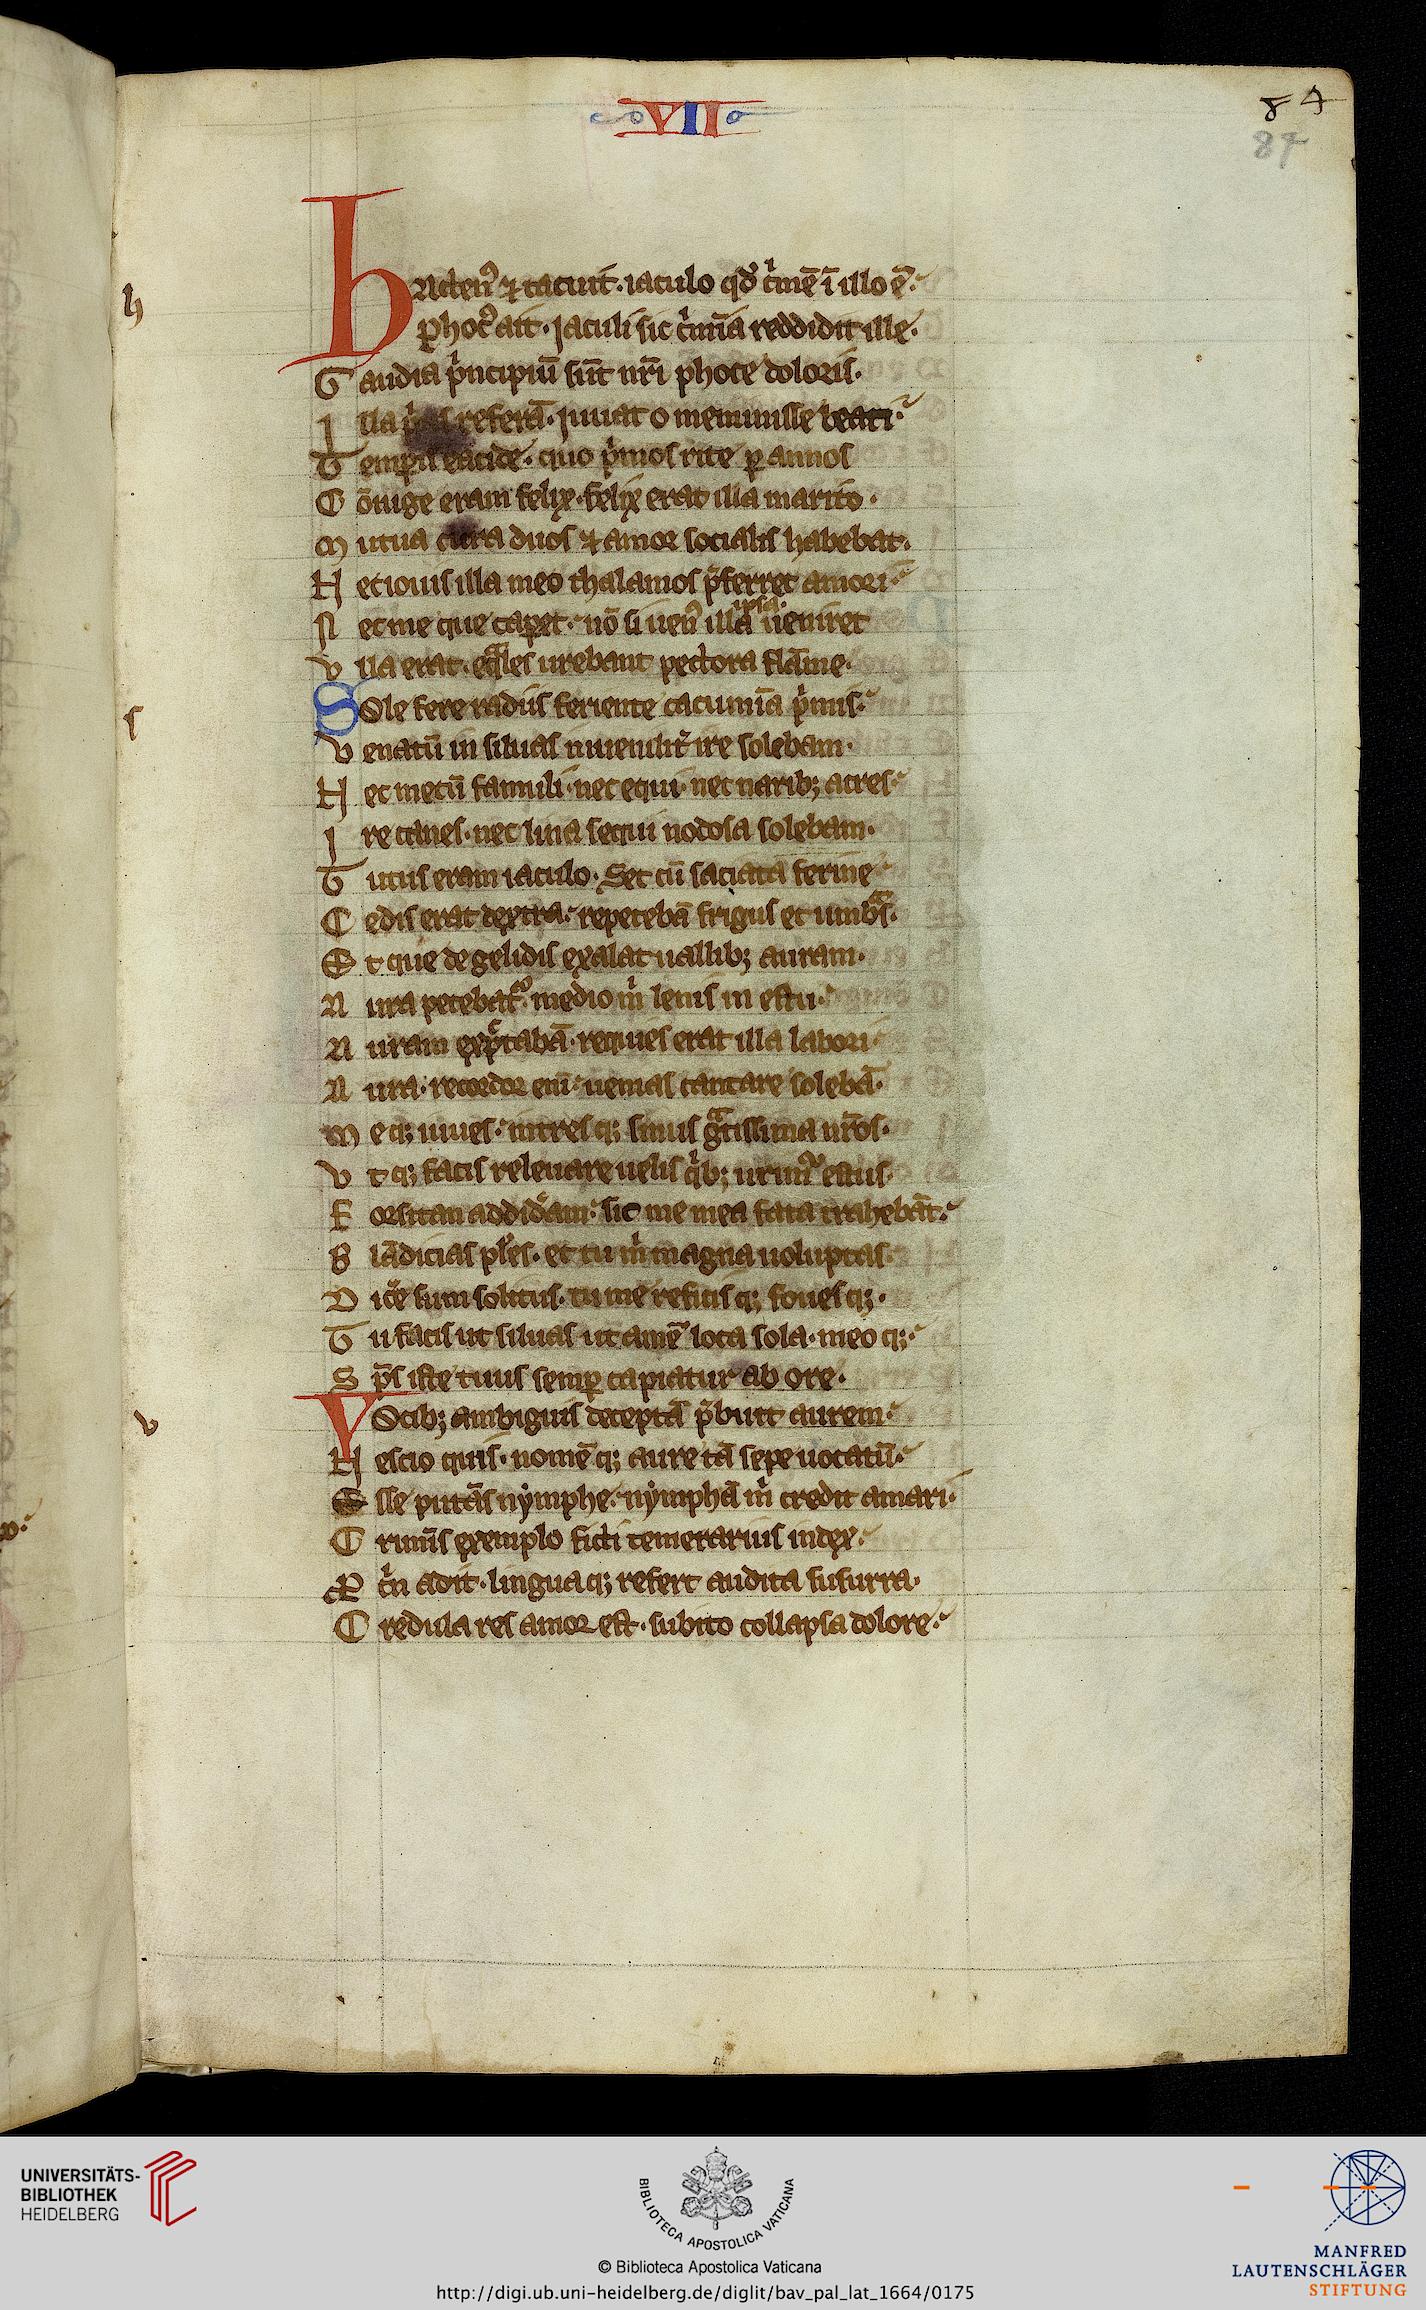 VII
84
84
h
hActen⁹ ⁊ tacuit · iaculo qd̛ c̛mē ī illo ē ·
phoc⁹ ait · Jaculi sic c̛mīa reddidit ille ·
G audia p̛ncipiū sūt nr̄i phoce doloris ·
J lla p̛us referā · juuat o meminisse beati ·
T emp̄is eacide · quo p̛mos rite ꝑ annos
C ōiuge eram felix · felix erat illa marito ·
M utua cura duos ⁊ amor socialis habebat ·
N ec iouis illa meo thalamos p̄ferret amori ·
N ec me que caꝑet · nō si uen⁹ illa ueniret
ipsa ·
V lla erat · eq̄les urebant pectora flāme ·
s
SOle fere radiis feriente cacumīa p̛mis ·
V enatū in siluas iuuenilit̛ ire solebam ·
N ec mecū famuli · nec equi · nec narib; acres ·
J re canes · nec lina sequi nodosa solebam ·
T utus eram iaculo · Set cū saciata ferine
C edis erat dextra · repetebā frigus et umbᵃs ·
E t que de gelidis exalat uallib; auram ·
A ura petebat̛ medio m̛ lenis in estu ·
A uram exp̄ctabā · requies erat illa labori ·
A ura · recordor enī · uenias cantare solebā ·
M eq; iuues · intresq; sinus gᵃtissima nr̄os ·
V tq; facis releuare uelis q̛b; urim̛ estus ·
F orsitan addid̛am · sic me mea fata trahebāt ·
B lādicias pl̛es · et tu m̛ magna uoluptas ·
D ic̛e sum solitus · tu me reficisq; fouesq; ·
T u facis ut siluas ut amē loca sola · meoq; ·
S p̄s iste tuus semꝑ capiatur ab ore ·
v
VOcib; ambiguis deceptā p̄buit aurem ·
N escio quis · nomēq; aure tā sepe uocatū ·
E sse putās nymphe · nymphā m̛ credit amari ·
C rimīs exemplo ficti temerarius index ·
P c̛n adit · linguaq; refert audita susurra ·
C redula res amor est · subito collapsa dolore ·
UNIVERSITÄTS-
BIBLIOTHEK
HEIDELBERG
BIBLIOTECA APOSTOLICA VATICANA
© Biblioteca Apostolica Vaticana
http://digi.ub.uni-heidelberg.de/diglit/bav_pal_lat_1664/0175
MANFRED
LAUTENSCHLÄGER
STIFTUNG